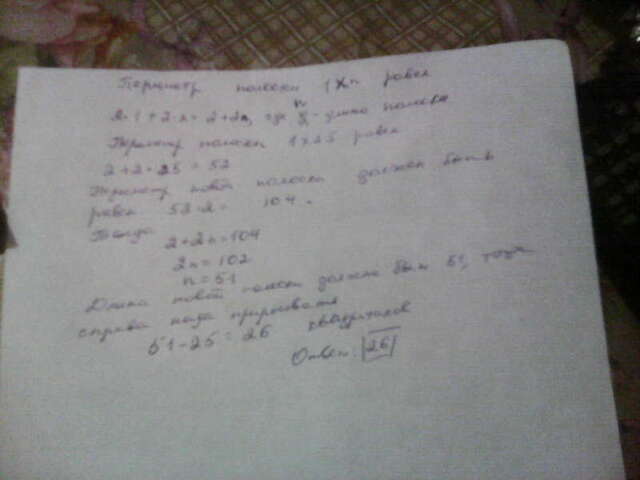 Периметр полоски 1×n равен
2·1+2·n=2+2n, где n - длина полоски
Периметр полоски 1×25 равен
2+2·25=52
Периметр новой полоски должен быть
равен 52·2= 104.
Тогда
2+2n=104
2n=102
n=51
Длина новой полоски должна быть 51, тогда
справа надо пририсовать
51-25=26 квадратиков
Ответ: 26